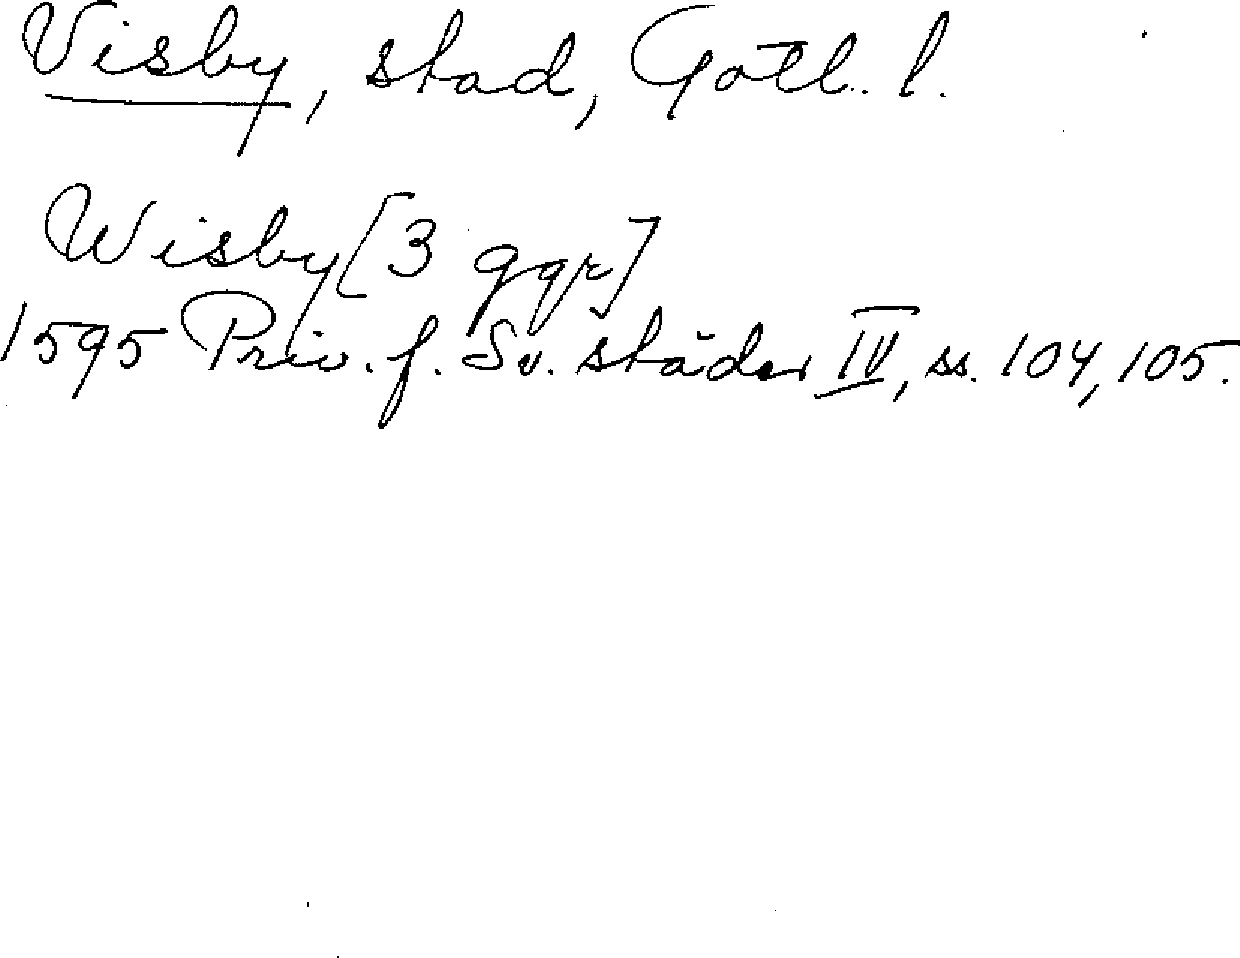 Visby, stad, Gotl. l.
Wisby [3 ggr]
1595 Priv. f. Sv. städer IV, ss. 104, 105.